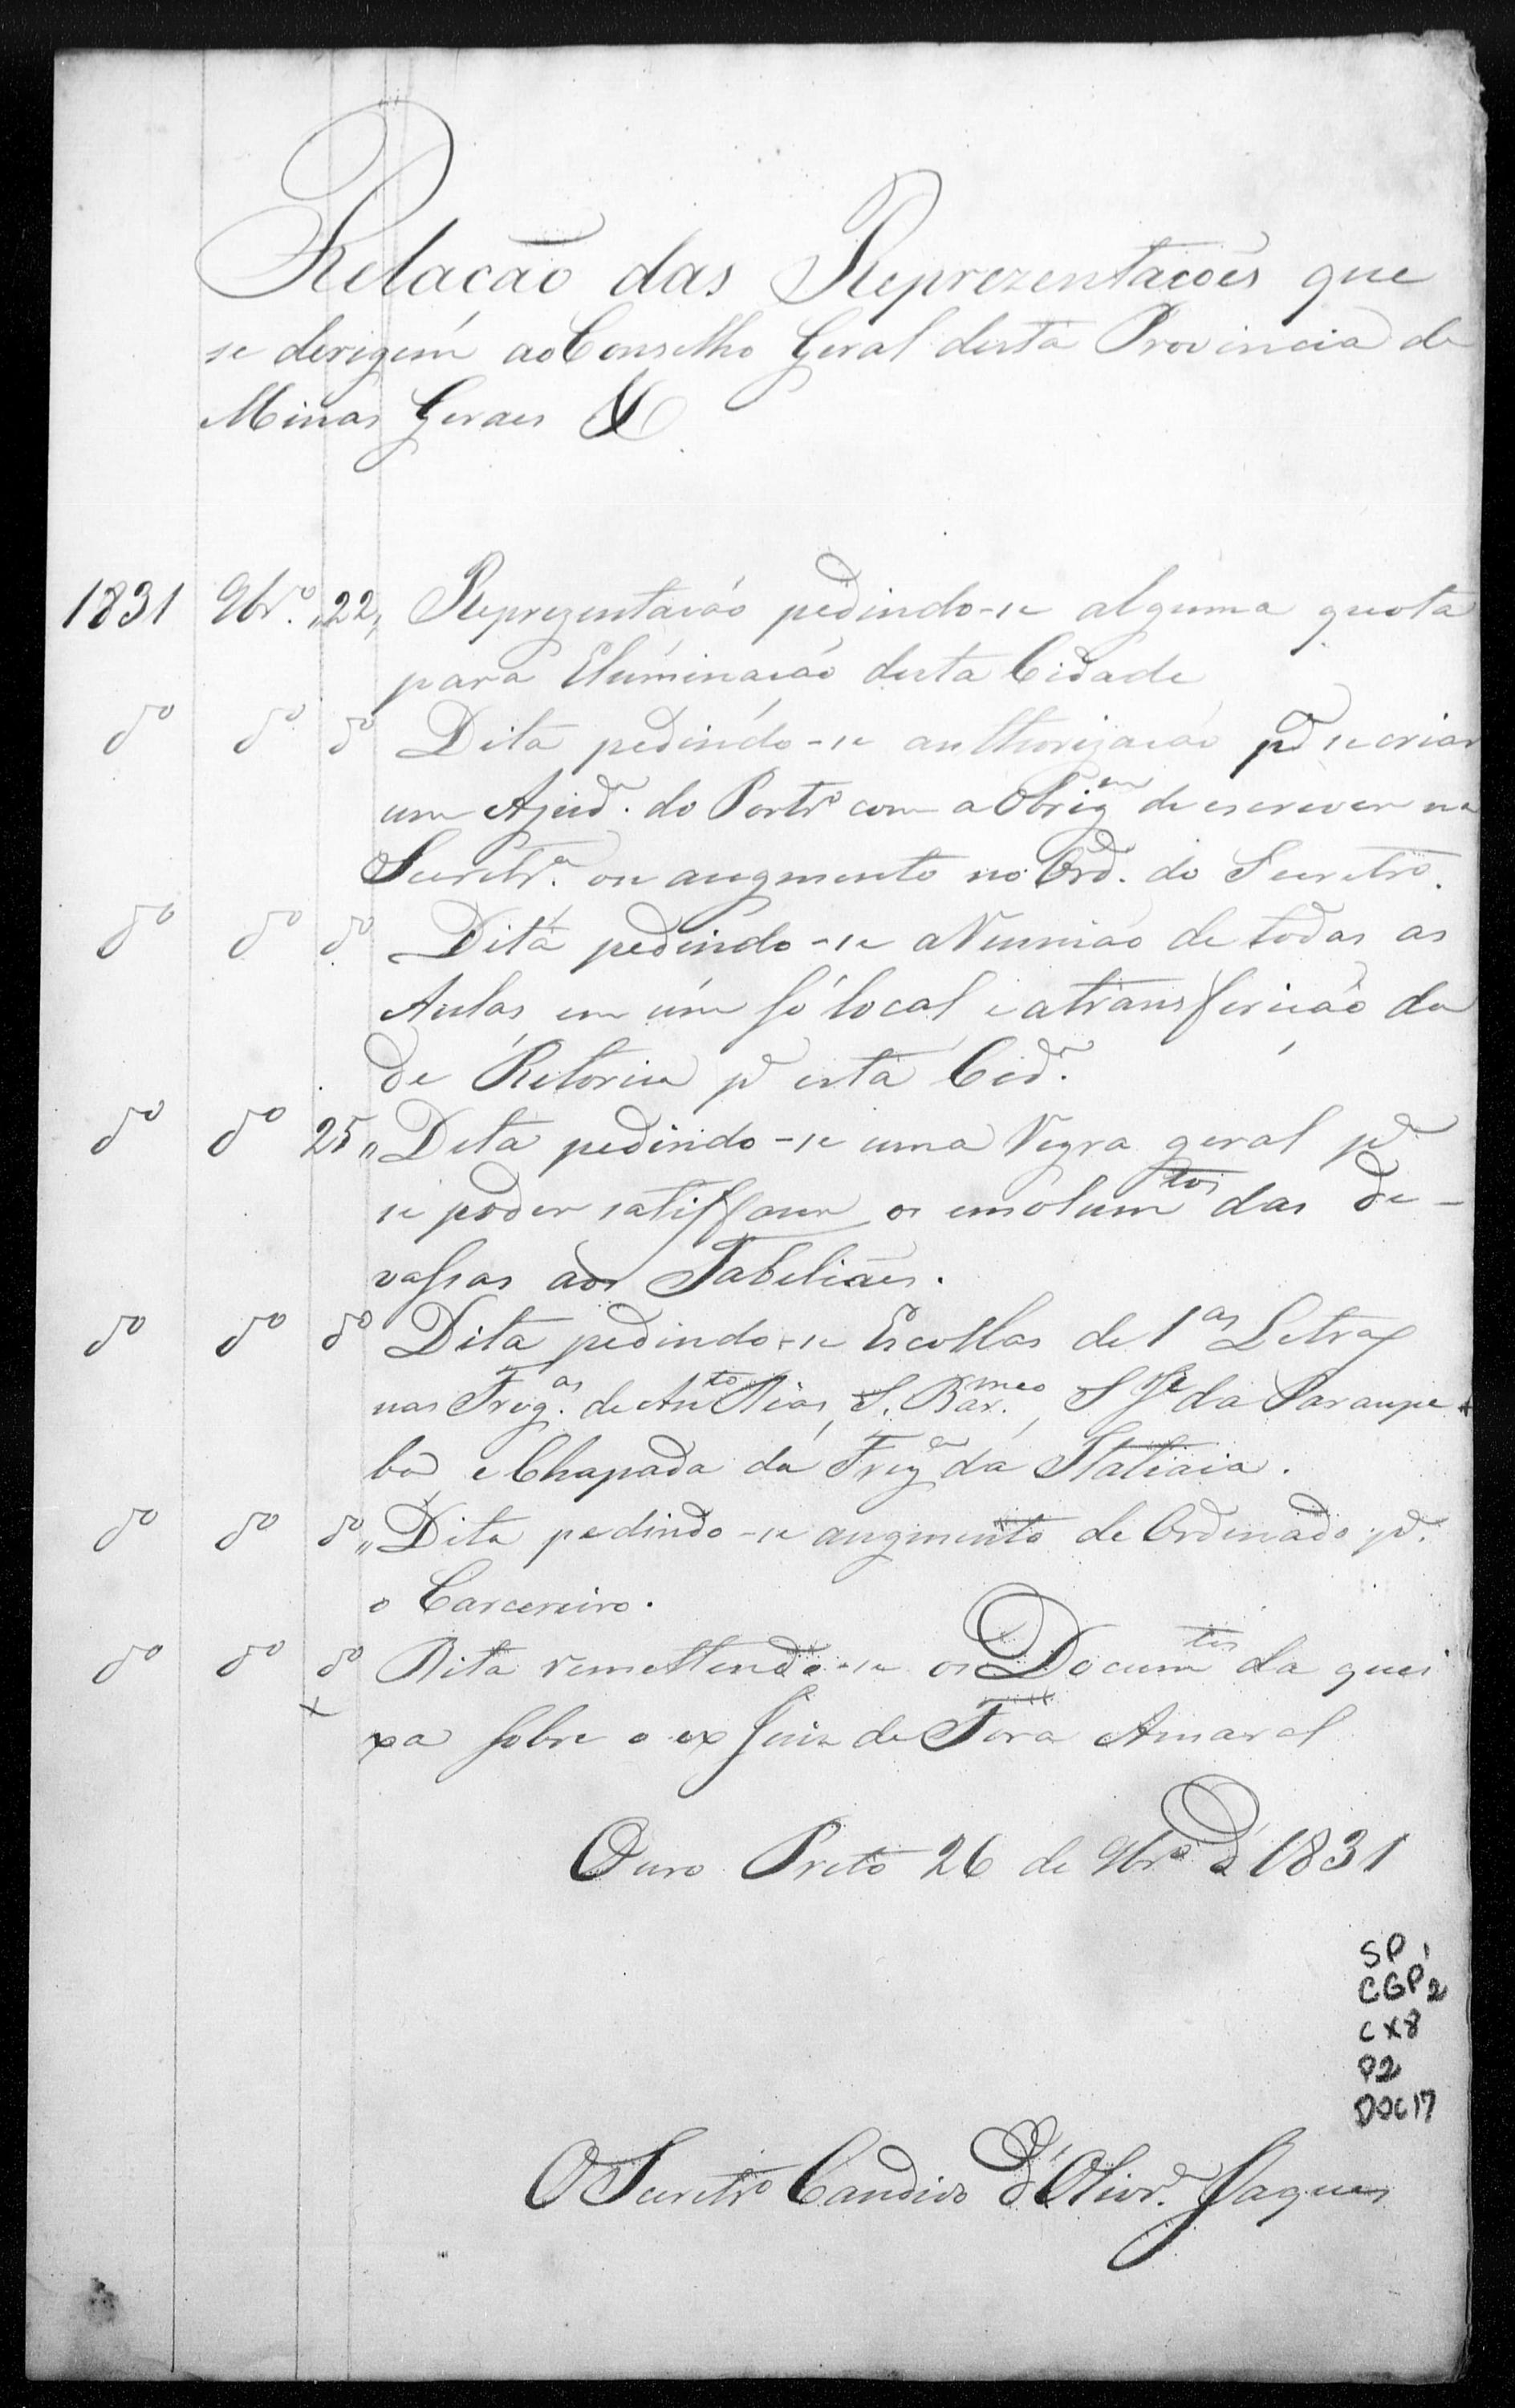 Relação das Reprezentaçoẽs que
se derigem ao Conselho Geral desta Provincia de
Minas Geraes &
1831 9br.º 22, Reprezentação pedindo-se alguma quota
para Eluminação desta Cidade
dº dº dº Dita pedindo-se authorização pª se criar
um Ajudᵉ. do Portrº com a Obrigᵃᵐ de escrever na
Secretrª. ou augmento no Ord. do Secretrº.
dº dº dº Dita pedindo-se a Reunião de todas as
Aulas em úm só local e a transferição da
de Retorica pª esta Cidᵉ.
dº dº 25 " Dita pedindo-se uma Regra geral pª
se poder satisfazer os emolumᵗᵒˢ das de-
vassas aos Tabeliães.
dº dº dº Dita pedindo-se Escollas de 1ᵃˢ Letras
nas Fregᵃˢ. de Antᵗᵒ Dias, S. Barᵐᵉᵒ., S Jᵉ da Paraupe
ba e Chapada da Fregª da Itatiaia.
dº dº dº " Dita pedindo-se augmento de Ordenado pª.
o Carcereiro.
dº dº dº Dita remettendo-se os Documᵗᵉˢ da quei
x xa sobre o ex Juiz de Fora Amaral
Ouro Preto 26 de 9brº d' 1831
SP 1
CGP 2
CX8
P2
DOC17
O Secretrº Candido d'Olivrª. Jaques